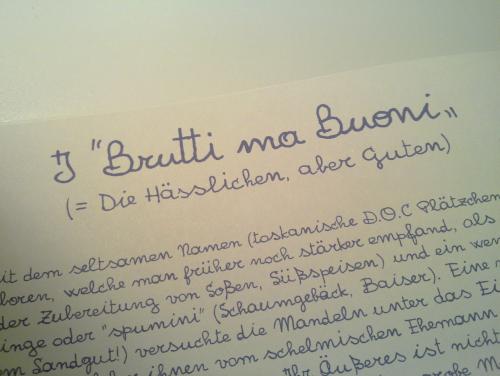 I "Brutti ma Buoni"
(= Die Hässlichen, aber Guten)
it dem seltsamen Namen (toskanische D.O.C Plätzchen
loren, welche man früher noch stärker empfand, als
der Zubereitung von Soßen, Süßspeisen) und ein wen
inge oder "spumini" (Schaumgebäck, Baiser). Eine
m Landgut!) versuchte die Mandeln unter das Ei
ihnen vom schelmischen Ehemann
Ihr Äußeres ist nicht